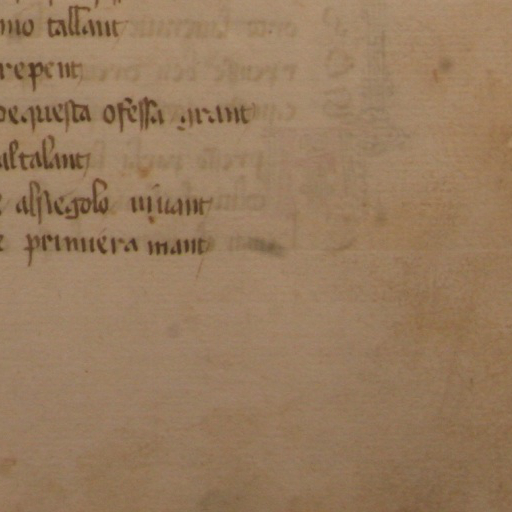 mo tallant
repent
dequesta ofessa grant
al talant
alsiegolo uiuant
primiera mant